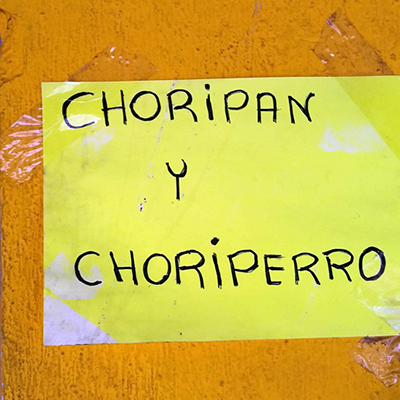 CHORiPAN
Y
CHORiPERRO